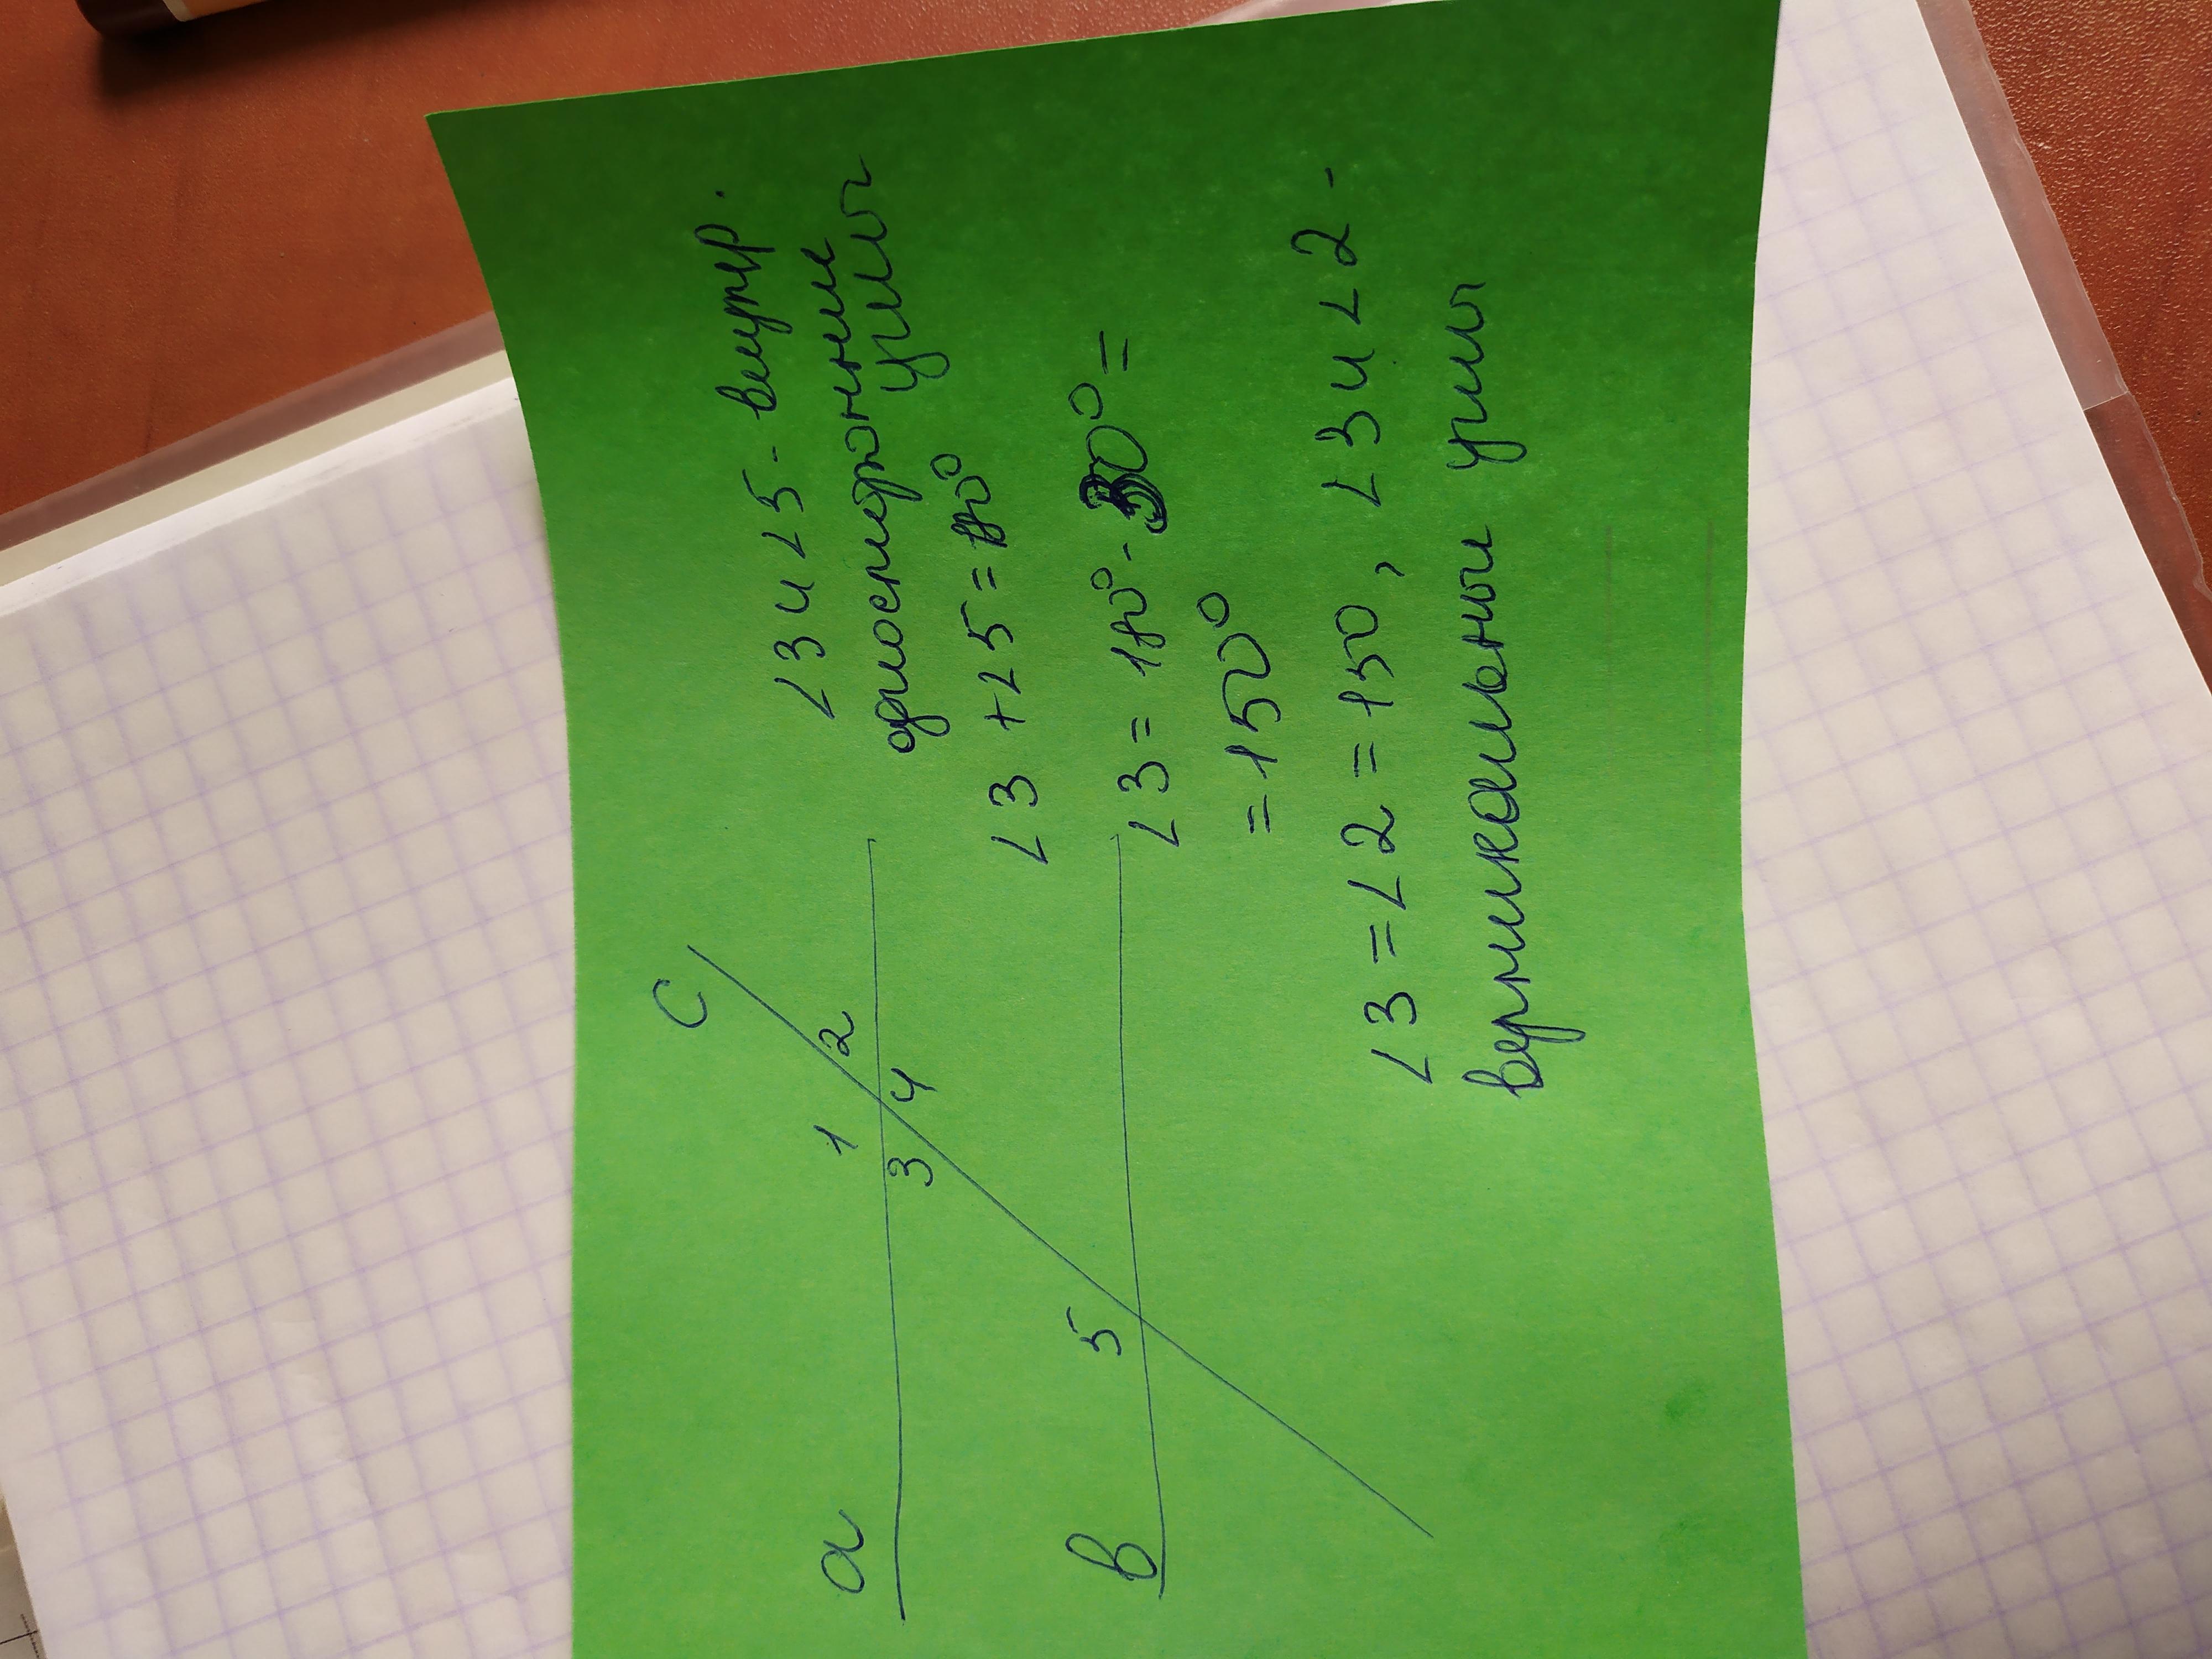 c
a
1 2
3 4
в
5
∠3 и ∠5 - внутр.
односторонние
углы
∠3 + ∠5 = 180°
∠3 = 180° - 30° =
= 150°
∠3 = ∠2 = 150, ∠3 и ∠2 -
вертикальные углы